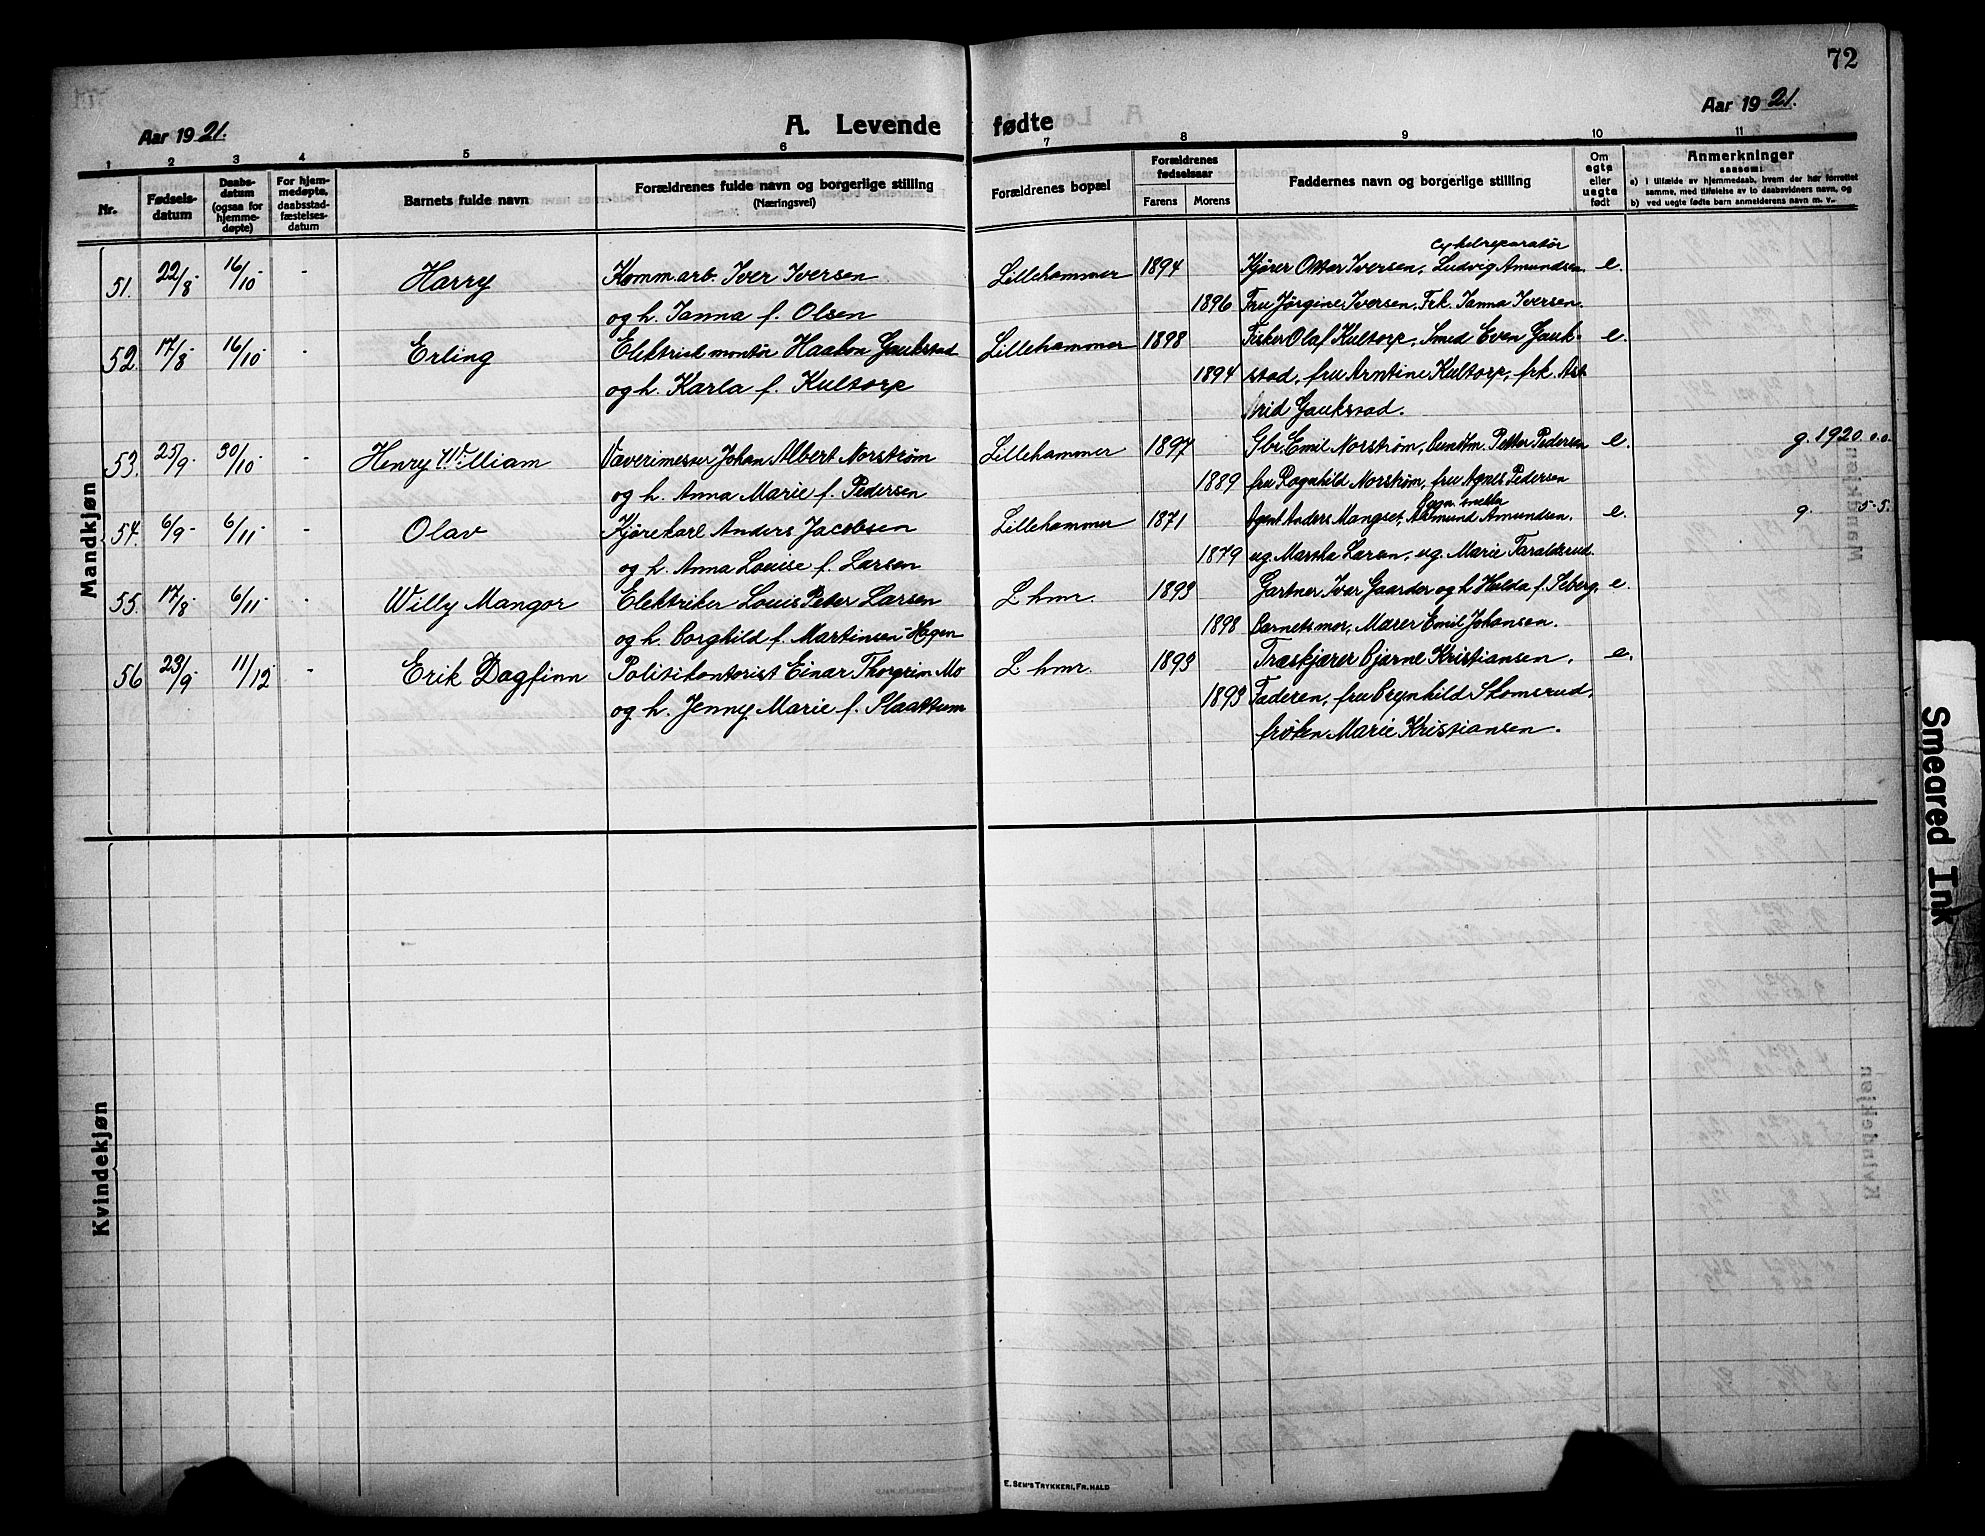 72
Aar 1921.
A. Levende fødte
Aar 1921.
1 2 3 4 5 6 7 8 9 10 11
Nr.
Fødsels-
datum
Daabs-
datum
(ogsaa for
hjemme-
døpte)
For hjem-
medøpte,
daabsstad-
fæstelses-
datum
Barnets fulde navn
Forældrenes fulde navn og borgerlige stilling
(Næringsvei)
Forældrenes bopæl
Forældrenes
fødselsaar
Farens Morens
Faddernes navn og borgerlige stilling
Om
egte
eller
uegte
født
Anmerkninger
saasom:
a) i tilfælde av hjemmedaab, hvem der har forrettet
samme, med tilføielse av to daabsvidners navn, og
b) ved uegte fødte barn anmelderens navn m. v.
Mandkjøn
Cykelreparatør
51. 22/8 16/10 - Harry Komm.arb. Iver Iversen Lillehammer 1894 Kjører Ottar Iversen, Ludvig Amundsen. e.
og h. Janna f. Olsen 1896 Fru Jørgine Iversen, Frk. Janna Iversen.
52. 17/8 16/10 - Erling Elektrisk montør Haakon Gaukstad Lillehammer 1898 Fisker Olaf Kultorp, Smed Even Gauk- e.
og h. Karla f. Kultorp 1894 stad, fru Arntine Kultorp, frk. Ast
trid Gaukstad.
53. 25/9 30/10 - Henry William Væverimester Johan Albert Norstrøm Lillehammer 1897 Gbr. Emil Norstrøm, Buntm. Petter Pedersen e. g. 1920 o.o.
og h. Anna Marie f. Pedersen 1889 fru Ragnhild Norstrøm, fru Agnes Pedersen
54. 6/9 6/11 - Olav Kjørekarl Anders Jacobsen Lillehammer 1871 Agent Anders Mangset, Aamund Amundsen. e. g. 5-5.
og h. Anna Louise f. Larsen 1879 ug. Martha Larsn, ug. Marie Taralderud.
55. 17/8 6/11 - Willy Mangor Elektriker Louis Peter Larsen L.hmr. 1893 Gartner Ivar Gaarder og h Hulda f. Seberg, e.
og h. Borghild f. Martinsen-Hagen 1898 Barnets mor, Murer Emil Johansen.
56 23/9 11/12 - Erik Dagfinn Politikontorist Einar Thorgrim Mo L. hmr. 1893 Træskjærer Bjarne Kristiansen, e.
og h. Jenny Marie f. Slaattum 1893 Faderen, fru Brynhild Skomsrud,
frøken Marie Kristiansen.
Kvindekjøn
E. SEM'S TRYKKERI, FR.HALD
Smeared Ink